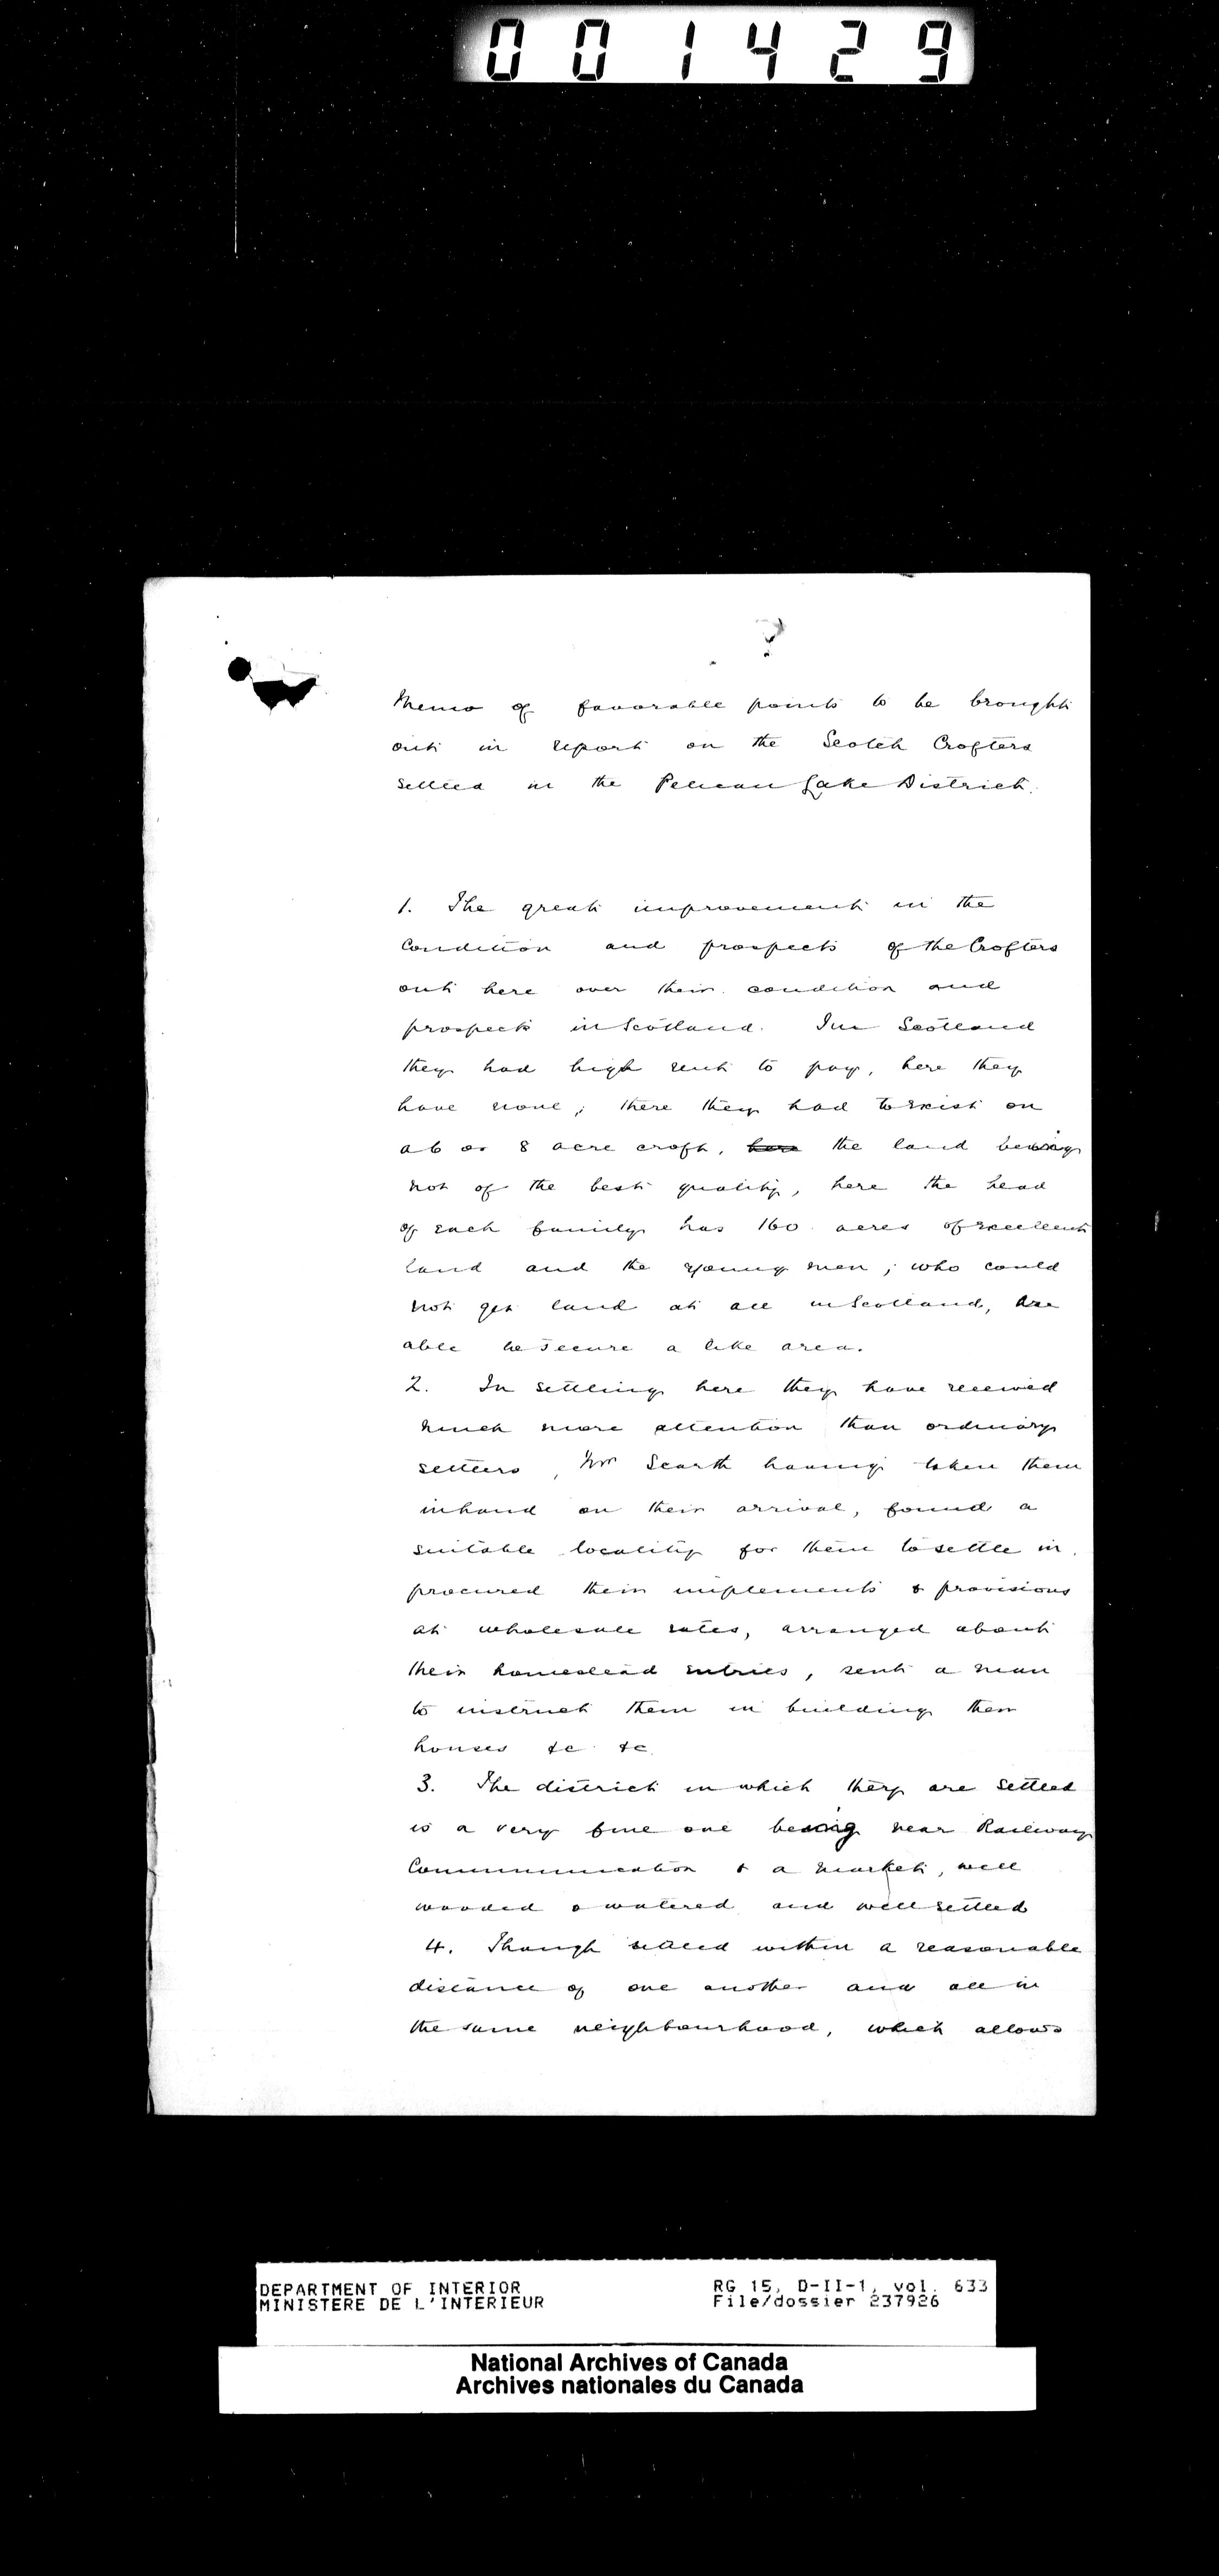 001429
Memo of favorable points to be brought
out in report on the Scotch Crofters
settled in the Pelican Lake District.
1. The great improvement in the
Condition and prospects of the Crofters
out here over their condition and
prospects in Scotland. In Scotland
they had high rent to pay, here they
have none; there they had to exist on
a 6 or 8 acre croft, here the land being
not of the best quality, here the head
of each family has 160 acres of excellent
land and the young men, who could
not get land at all in Scotland, are
able to secure a like area.
2. In settling here they have received
much more attention than ordinary
settlers, Mr Scarth having taken them
in hand on their arrival, found a
suitable locality for them to settle in,
procured their implements & provisions
at wholesale rates, arranged about
their homestead entries, sent a man
to instruct them in building their
houses &c &c.
3. The district in which they are settled
is a very fine one being near Railway
Communication & a market, well
wooded & watered and well settled
4. Though settled within a reasonable
distance of one another and all in
the same neighbourhood, which allows
DEPARTMENT OF INTERIOR
MINISTERE DE L'INTERIEUR
RG 15, D-II-1, vol. 633
File/dossier 237926
National Archives of Canada
Archives nationales du Canada